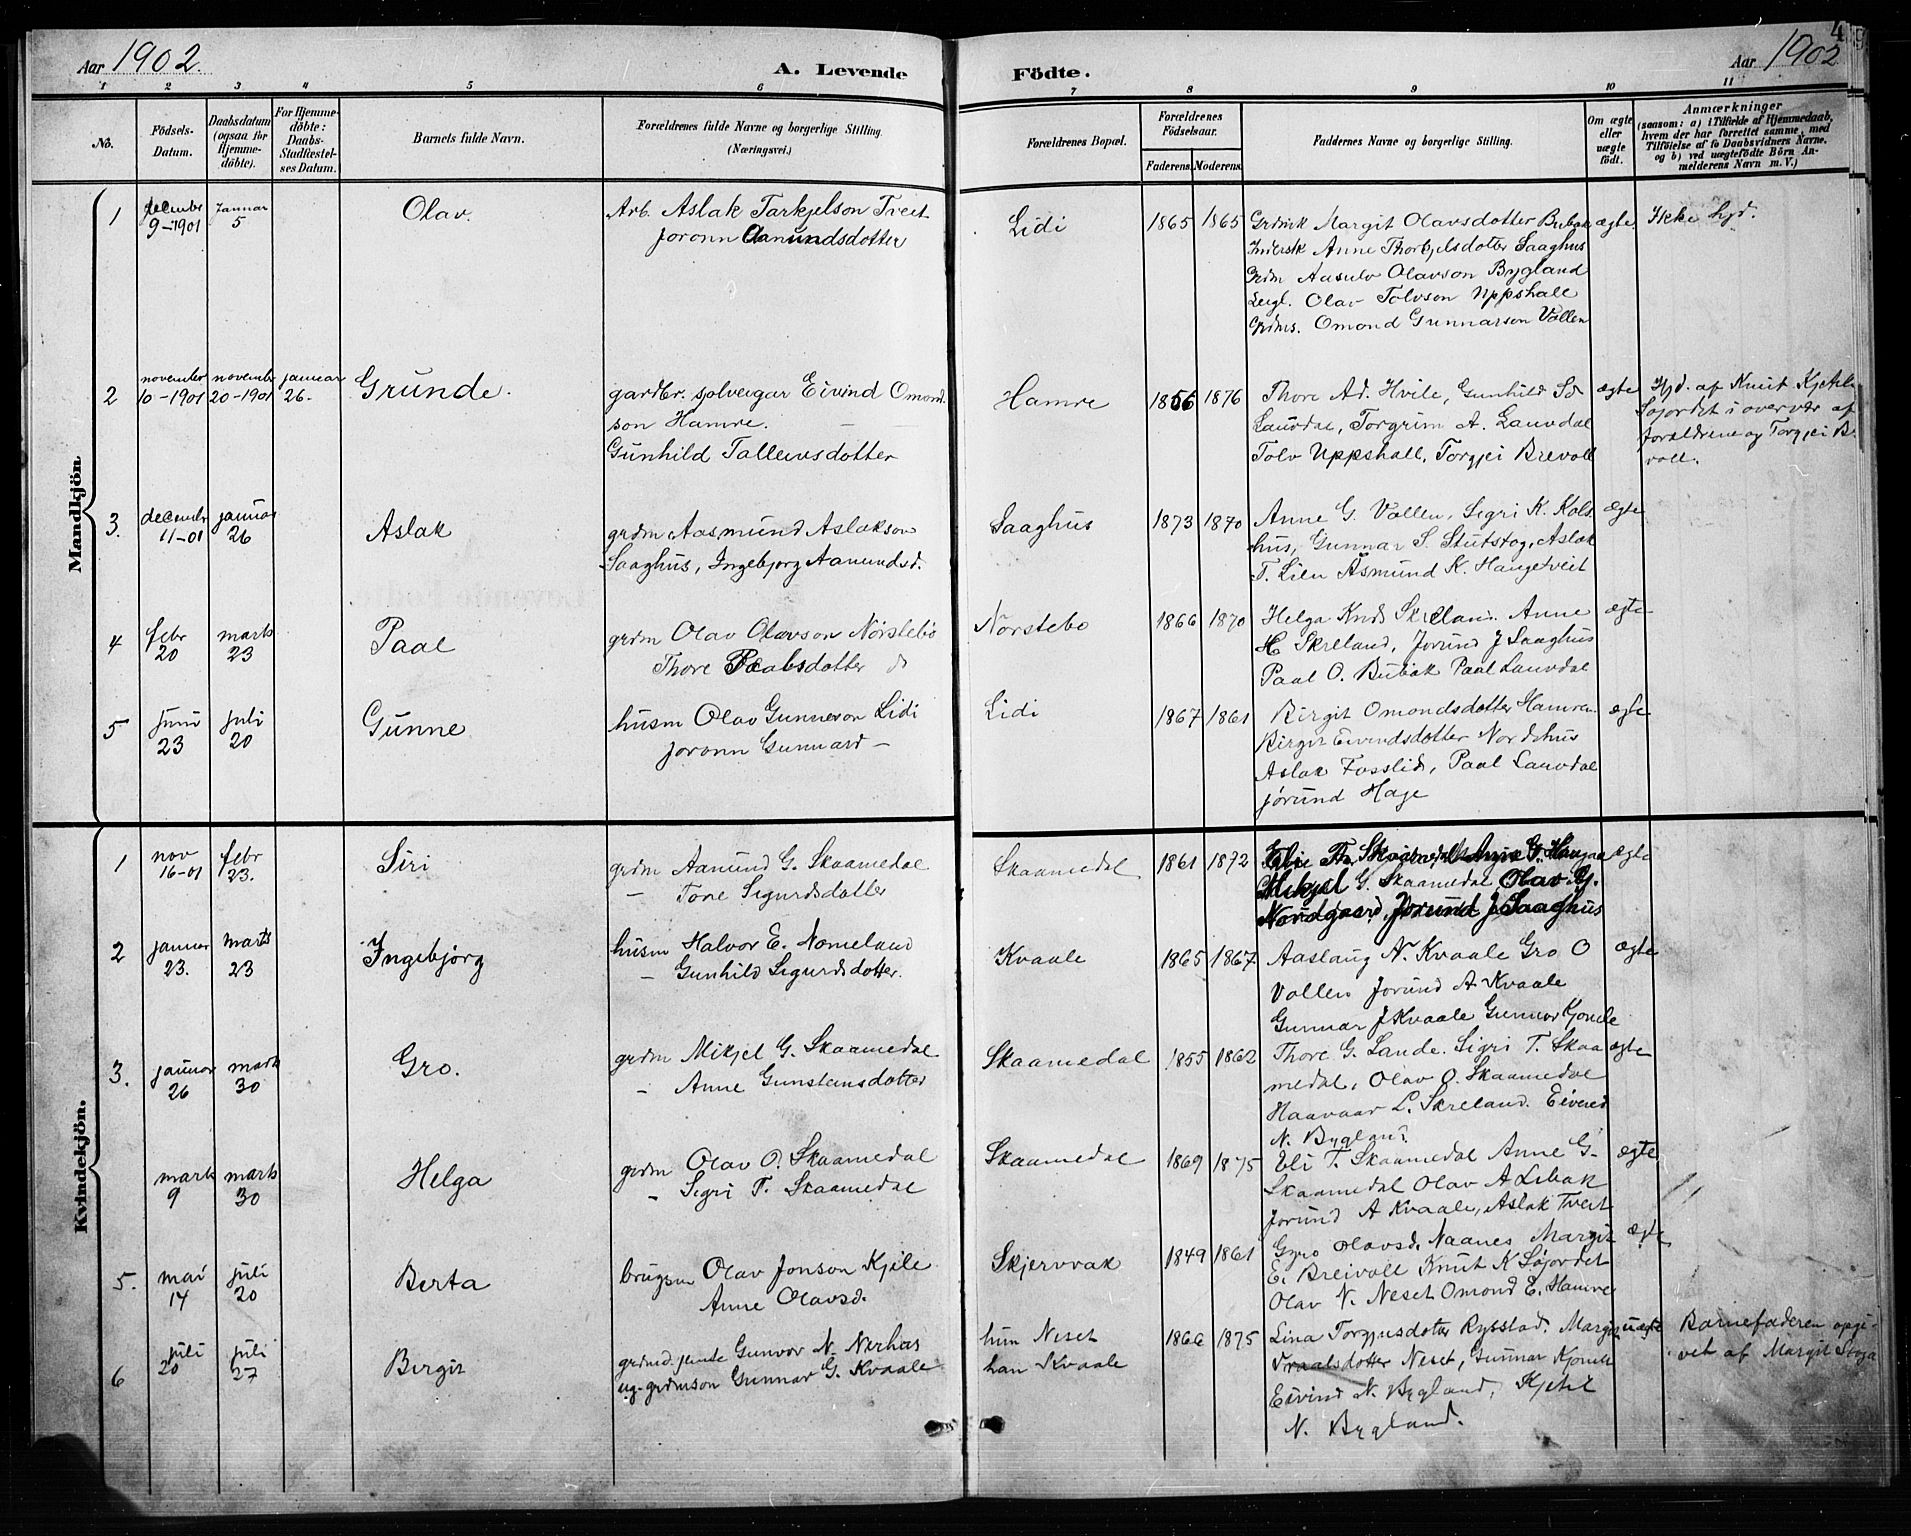 4
Aar 1902.
A. Levende
Födte.
Aar 1902
1 2 3 4 5 6
7 8 9 10 11
No.
Födsels-
Datum.
Daabsdatum
(ogsaa for
Hjemme-
döbte).
For Hjemme-
döbte:
Daabs-
Stadfæstel-
ses Datum.
Barnets fulde Navn.
Forældrenes fulde Navne og borgerlige Stilling.
(Næringsvei.)
Forældrenes Bopæl.
Forældrenes
Födselsaar.
Faderens. Moderens.
Faddernes Navne og borgerlige Stilling.
Om ægte
eller
uægte
födt.
Anmærkninger
(saasom: a) i Tilfælde af Hjemmedaab,
hvem der har forrettet samme, med
Tilföielse af to Daabsvidners Navne,
og b) ved uægtefödte Börn An-
melderens Navn m. V.)
Mandkjön.
1
december
9-1901
Januar
5
Olav.
Arb. Aslak Tarkjelson Tveit
Joronn Aamundsdotter
Lidi
1865 1865
Margit Olavsdotter Bubak
Anne Thorbjelsdotter Saaghus
Grdm Aasulv Olavson Bygland
Leigl. Olav Tolvson Uppshall
Grdms. Omond Gunnarson Vollen
ægte.
Ikke hjd.
2
november
10-1901
november
20-1901
januar
26.
Grunde.
gardbr. sjølveigar Eivind Omond
son Hamre.
Gunhild Tallevsdotter
Hamre
1856 1876
Thore Ad. Hvile, Gunhild Sd
Lauvdal, Torgrim A. Lauvdal
Tolv Uppshall, Torgjei Brevoll
ægte
Hjd. af Knut Kjetils
Løjordet i overvær af
forældrene og Torgjei B.
voll.
3.
decembr
11-01
januar
26
Aslak
grdm Aasmund Aslakson
Saaghus, Ingebjorg Aamundsd.
Saaghus
1873 1870
Anne G. Vollen, Sigri K. Kols
hus, Gunnar S. Stutstog, Aslak
T. Lien Asmund K. Haugetveit
ægte
4
febr
20
marts
23
Paal
grdm Olav Olavson Nörstebö
Thore Paalsdotter
Nörstebö
1866 1870
Helga Knds Skreland. Anne
H Skreland, Jorund J Saaghus
Paal O. Bubak Paal Lauvdal
ægte
5
juni
23
juli
20
Gunne
husm Olav Gunnarson Lidi
Joronn Gunnarsd -
Lidi
1867 1861
Birgit Omondsdotter Hamre
Birgit Eivindsdotter Nordshus
Aslak Fosslid, Paal Lauvdal
Jørund Hage
ægte
Kvindekjön.
1
nov
16-01
febr
23.
Siri
grdm Aamund G. Skaamedal
- Tone Sigurdsdatter
Skaamedal
1861 1872
Eli Th. Skaamedal Anne G.
Mikjel G. Skaamedal Olav G.
Nordgaard, Jorund J Saaghus
ægte
2
januar
23.
marts
23
Ingebjörg
husm Halvor E. Nomeland
- Gunhild Sigurdsdotter.
Kvaale
1865 1867
Aaslaug N. Kvaale Gro O
Vollen Jorund A Kvaale
Gunnar J Kvaale Gunnar Kjomle
ægte
3.
januar
26
marts
30
Gro.
grdm Mikjel G. Skaamedal
- Anne Gunsteinsdatter
Skaamedal
1855 1862
Thore G. Lande. Sigri T. Skaa
medal, Olav O. Skaamedal
Haavaar L. Skreland. Eivend
N. Bygland.
ægte
marts
9
marts
30
Helga
grdm Olav O. Skaamedal
- Sigri T. Skaamedal
Skaamedal
1869 1875
Eli T. Skaamedal Anne G-
Skaamedal Olav A Libak
Jorund A Kvaale, Aslak Tveit
ægte
5.
mai
14
juli
20
Berta
brugsm Olav Jonson Kjile
Anne Olavsd.
Skjervvak
1849 1861
Gyro Olavsd. Naanes Margit
E. Breivoll Knut K Løjordet
Olav N. Neset Omond E. Hamre
ægte
6
juli
20
juli
27
Birgit
Gunvor N. Nerhus
ug. grdmson Gunnar G. Kvaale
hun Neset
han Kvaale
1866 1875
Lina Torgjusdotter Rysstad. Margit
Traalsdotter Neset, Gunnar Kjomle
Eivind N. Bygland, Kjetil
N. Bygland.
uægte
Barnefaderen opgi-
vet af Margit